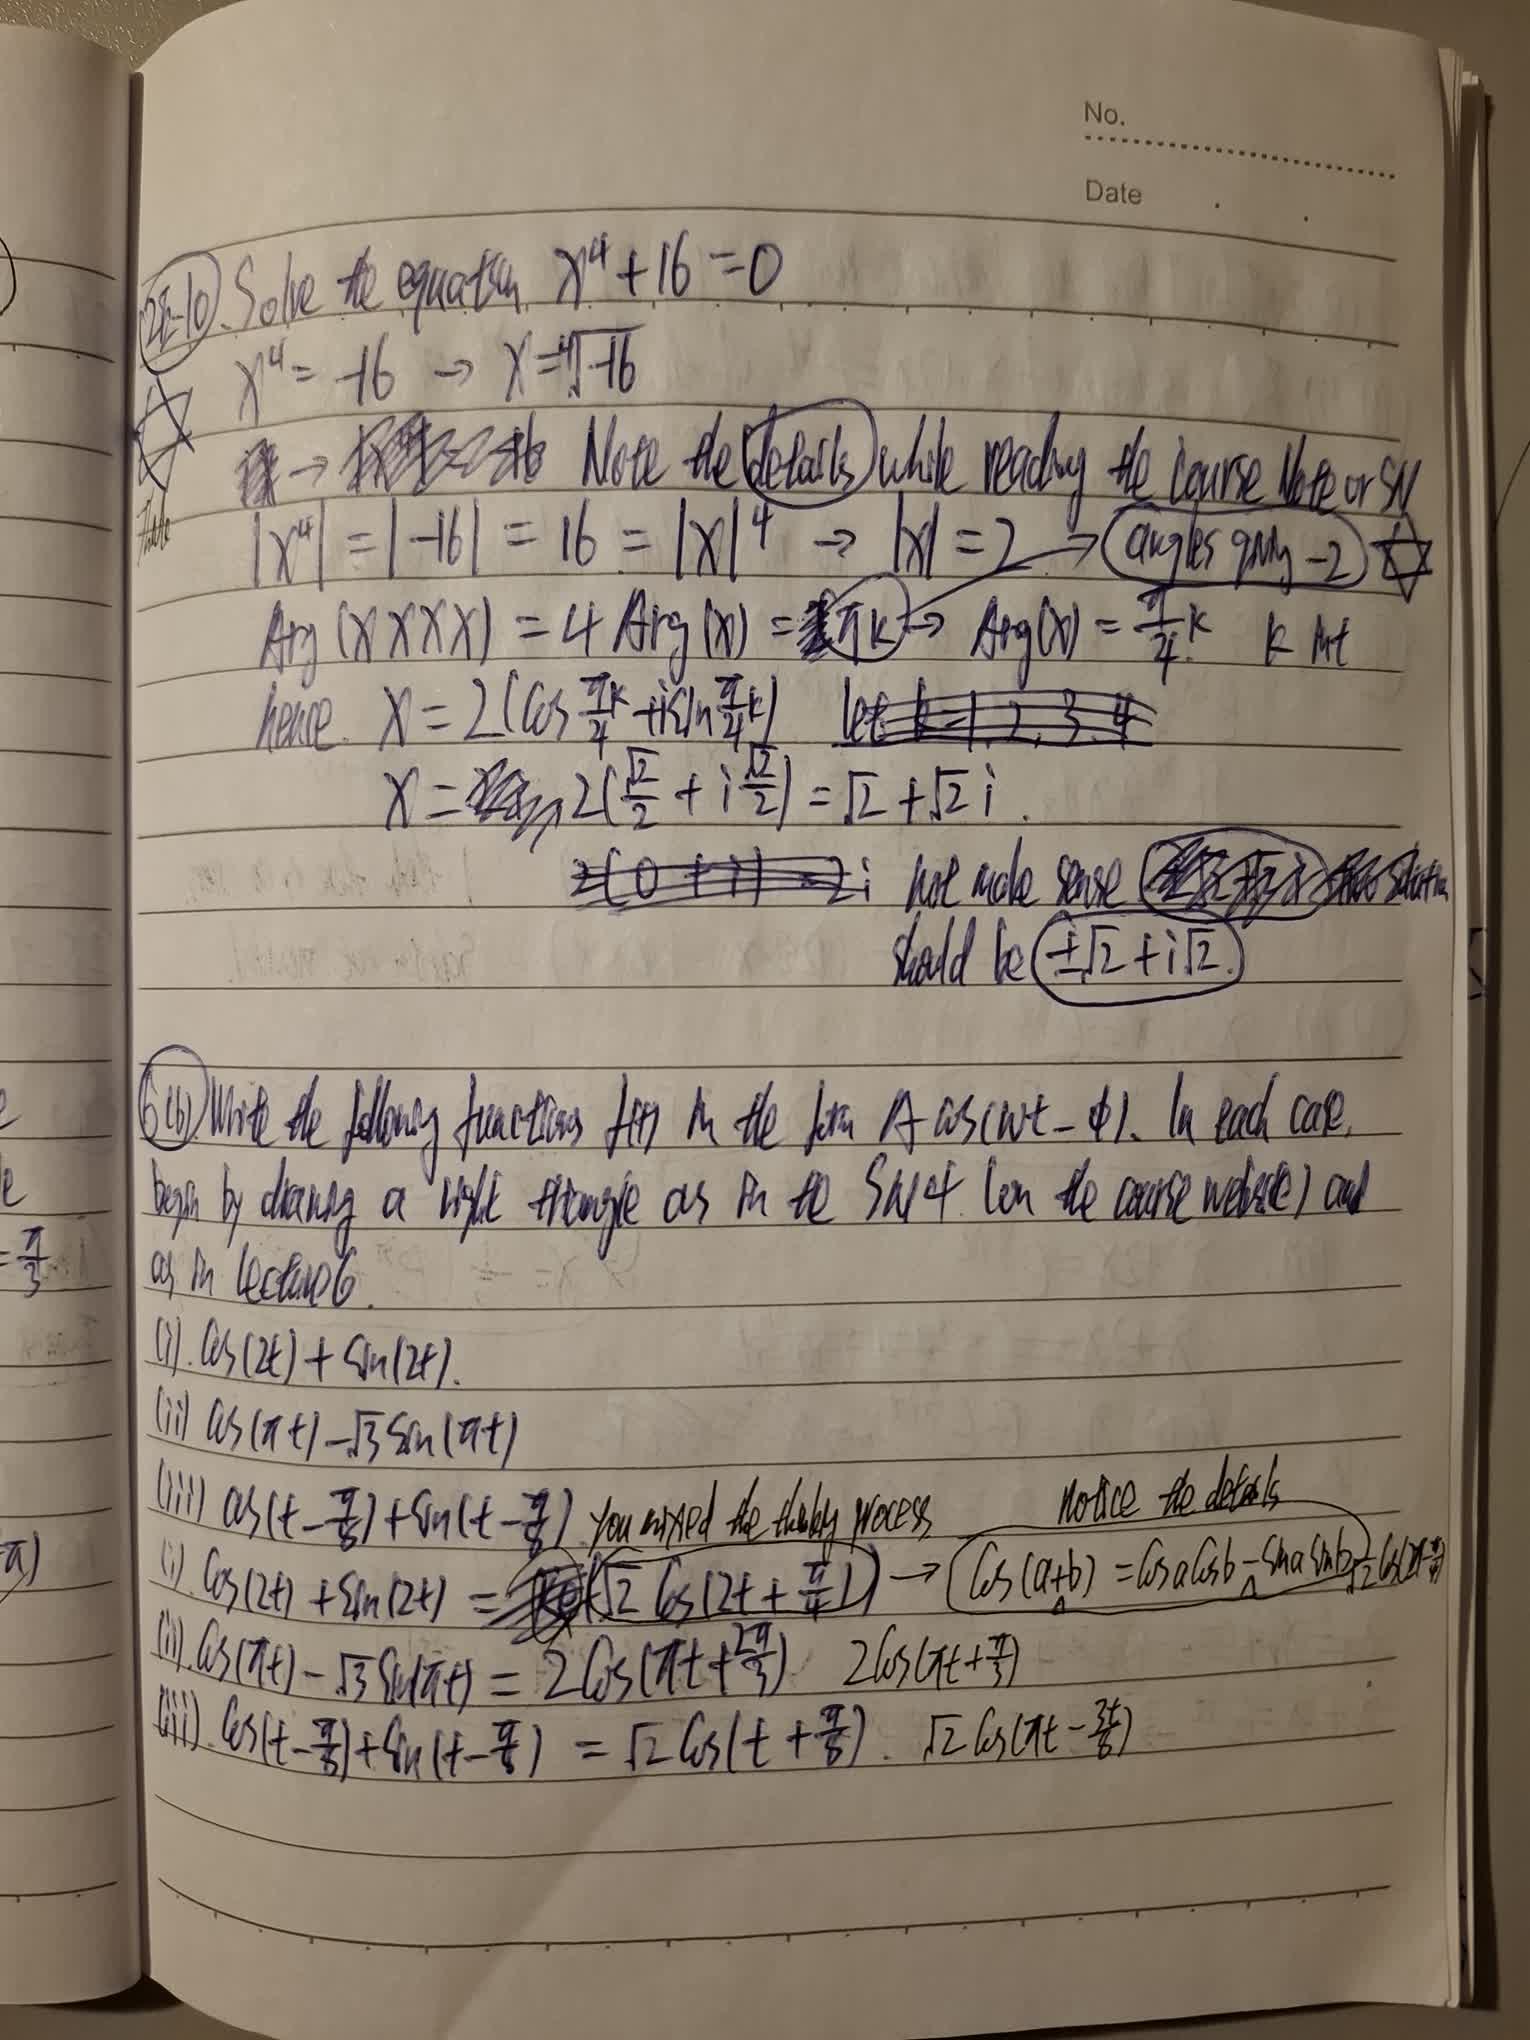 No.
Date
2E-10. Solve the equation x⁴ + 16 = 0
x⁴ = -16 → x = ⁴√-16
→ Note the details while reading the course Note or SN
|x⁴| = |-16| = 16 = |x|⁴ → |x| = 2 → angles
Arg (xxxx) = 4 Arg(x) = πk → Arg(x) = π/4 k k int
hence x = 2(cos πk/4 + i sin π/4 k) let k=1, 2, 3, 4
x = 2(√2/2 + i √2/2) = √2 + √2 i.
2(0 + i) = 2i not make sense solution
should be ±√2 + i√2.
6(b) Write the following functions f(t) in the form A cos(wt - φ). In each case,
begin by drawing a right triangle as in the SN4 (on the course website) and
as in Lecture 6.
(i). cos(2t) + sin(2t).
(ii) cos(πt) - √3 sin(πt)
(iii) cos(t - π/8) + sin(t - π/8) You mixed the process notice the details
(i). cos(2t) + sin(2t) = (√2 cos(2t + π/4)) → cos(a+b) = cosa cosb - sina sinb √2 cos(2t - π/4)
(ii). cos(πt) - √3 sin(πt) = 2cos(πt + 2π/3) 2cos(πt + π/3)
(iii). cos(t - π/8) + sin(t - π/8) = √2 cos(t + π/8). √2 cos(πt - 3π/8)